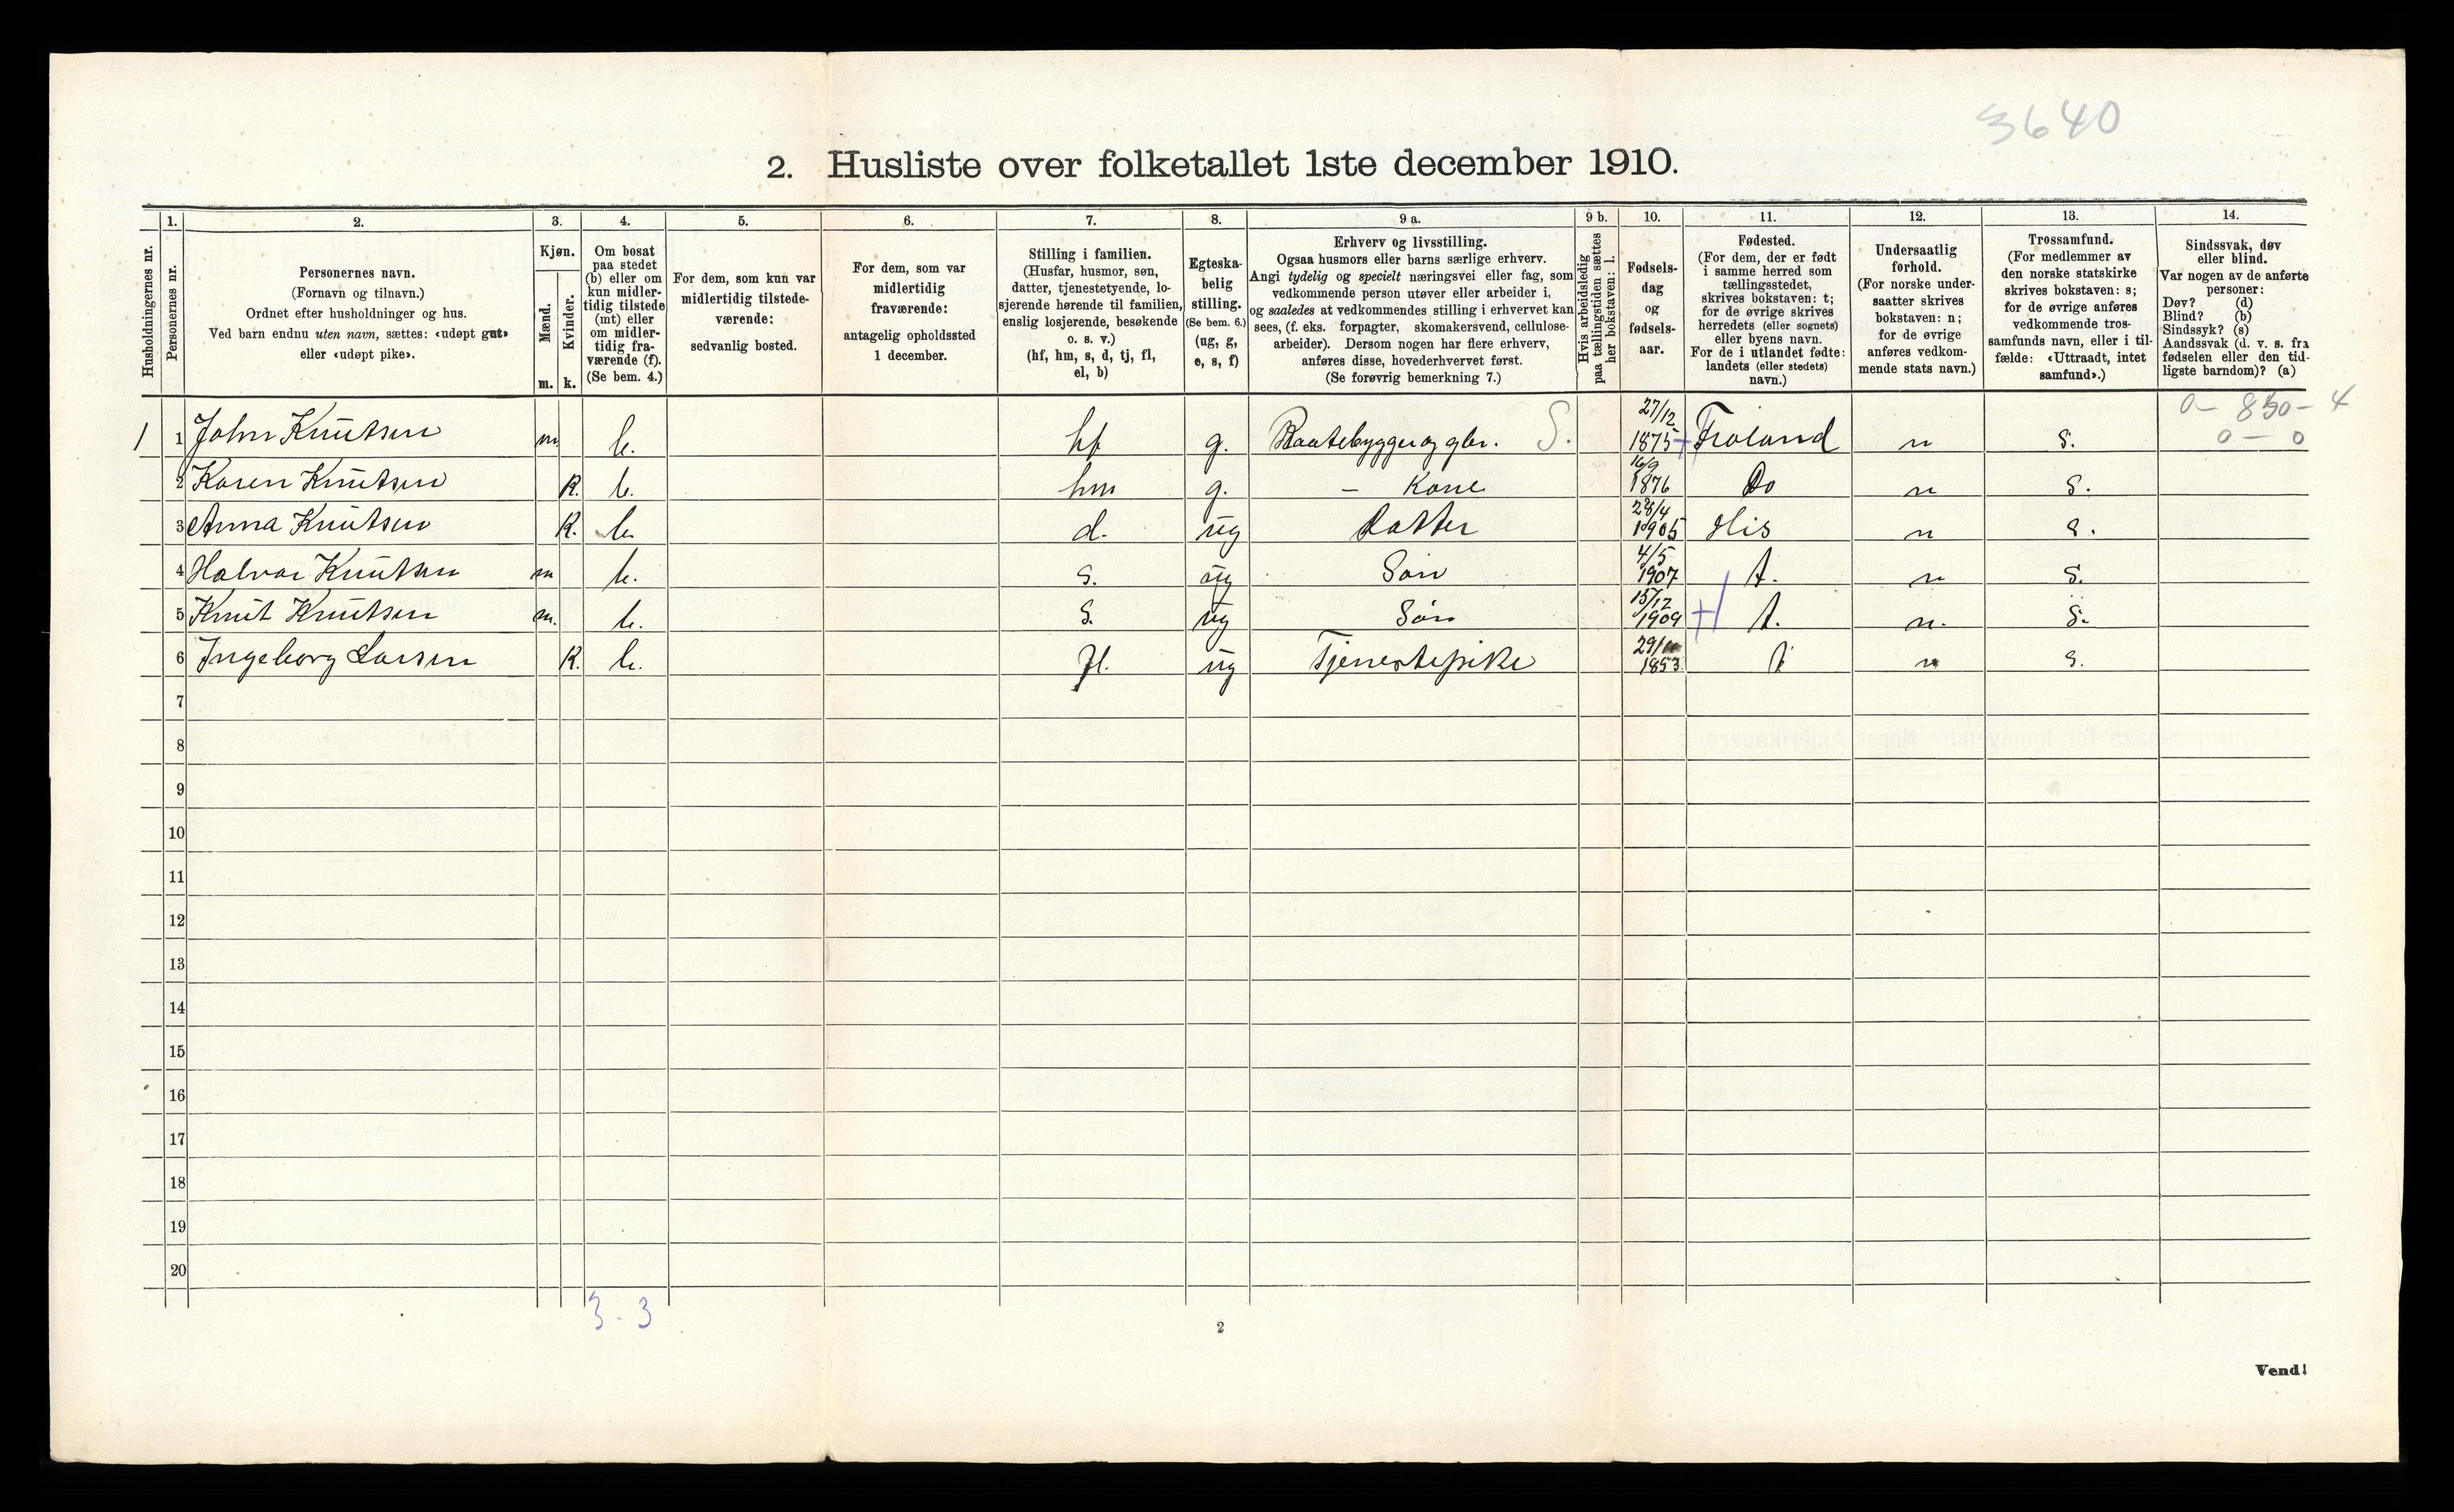 3640
2. Husliste over folketallet 1ste december 1910.
Husholdningernes nr.
1.
Personernes nr.
2.
Personernes navn.
(Fornavn og tilnavn.)
Ordnet efter husholdninger og hus.
Ved barn endnu uten navn, sættes: «udøpt gut»
eller «udøpt pike».
3.
Kjøn.
Mænd.
Kvinder.
m. k.
4.
Om bosat
paa stedet
(b) eller om
kun midler-
tidig tilstede
(mt) eller
om midler-
tidig fra-
værende (f).
(Se bem. 4.)
5.
For dem, som kun var
midlertidig tilstede-
værende:
sedvanlig bosted.
6.
For dem, som var
midlertidig
fraværende:
antagelig opholdssted
1 december.
7.
Stilling i familien.
(Husfar, husmor, søn,
datter, tjenestetyende, lo-
sjerende hørende til familien,
enslig losjerende, besøkende
o. s. v.)
(hf, hm, s, d, tj, fl,
el, b)
8.
Egteska-
belig
stilling.
(Se bem. 6.)
(ug, g,
e, s, f)
9 a.
Erhverv og livsstilling.
Ogsaa husmors eller barns særlige erhverv.
Angi tydelig og specielt næringsvei eller fag, som
vedkommende person utøver eller arbeider i,
og saaledes at vedkommendes stilling i erhvervet kan
sees, (f. eks. forpagter, skomakersvend, cellulose-
arbeider). Dersom nogen har flere erhverv,
anføres disse, hovederhvervet først.
(Se forøvrig bemerkning 7.)
9 b.
Hvis arbeidsledig
paa tællingstiden sættes
her bokstaven: l.
10.
Fødsels-
dag
og
fødsels-
aar.
11.
Fødested.
(For dem, der er født
i samme herred som
tællingsstedet,
skrives bokstaven: t;
for de øvrige skrives
herredets (eller sognets)
eller byens navn.
For de i utlandet fødte:
landets (eller stedets)
navn.)
12.
Undersaatlig
forhold.
(For norske under-
saatter skrives
bokstaven: n;
for de øvrige
anføres vedkom-
mende stats navn.)
13.
Trossamfund.
(For medlemmer av
den norske statskirke
skrives bokstaven: s;
for de øvrige anføres
vedkommende tros-
samfunds navn, eller i til-
fælde: «Uttraadt, intet
samfund».)
14.
Sindssvak, døv
eller blind.
Var nogen av de anførte
personer:
Døv? (d)
Blind? (b)
Sindssyk? (s)
Aandssvak (d. v. s. fra
fødselen eller den tid-
ligste barndom)? (a)
1 1 John Knutsen m. b. hf g. Baatebygger og gbr. S. 27/12 1875 + Froland n s. 0 - 850 - 4
0 - 0
2 Karen Knutsen K. b. hm g. - Kone 16/9 1876 Do n s.
3 Anna Knutsen K. b. d. ug Datter 28/4 1905 His n s.
4 Halvor Knutsen m b. s. ug Søn 4/5 1907 t. n s.
5 Knut Knutsen m. b. s. ug Søn 15/12 1909 t. n. s.
6 Ingeborg Larsen K. b. fl. ug Tjenestepike 1853 t n s.
7
8
9
10
11
12
13
14
15
16
17
18
19
20
3 - 3
2
Vend!